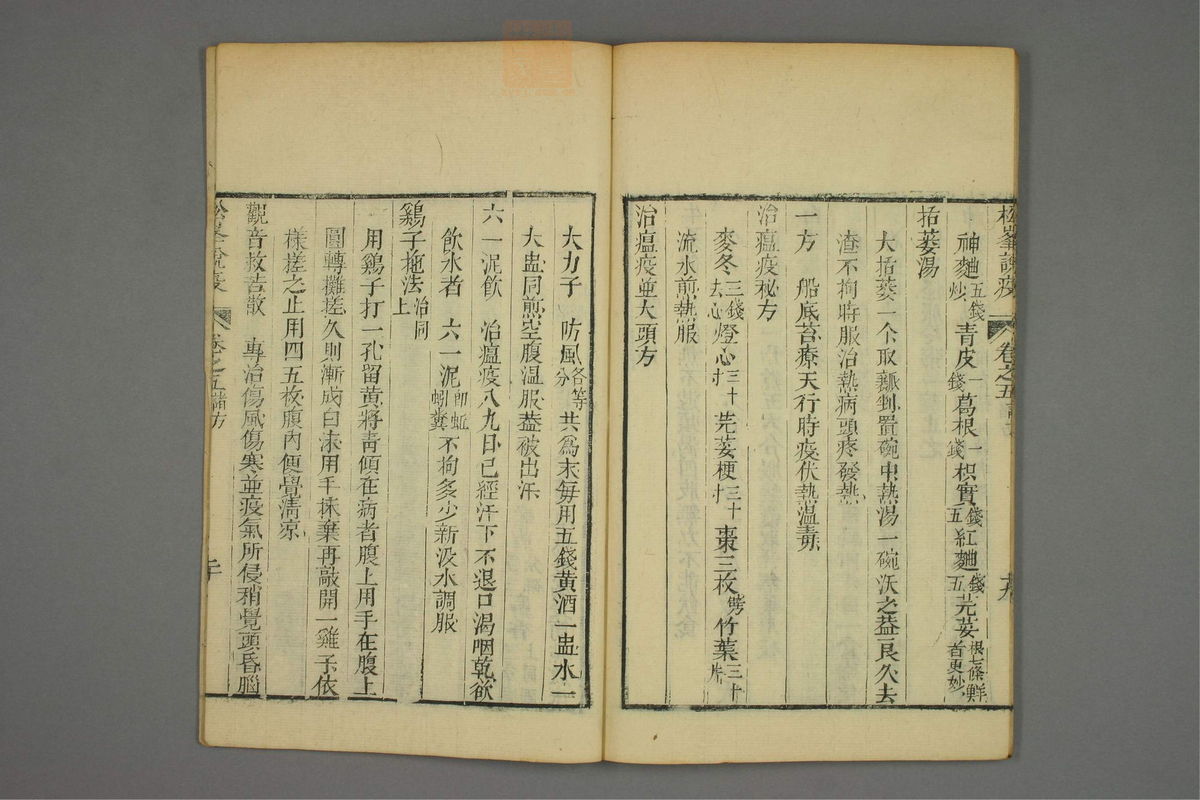 松峯說疫 卷之五
神麯五錢炒 青皮一錢 葛根一錢 枳實五錢 紅麯五錢 芫荽根七條鮮者更妙
括蔞湯
大括蔞一个取瓤剉置碗中熱湯一碗沃之葢良久去
渣不拘時服治熱病頭疼發熱
一方 船底苔療天行時疫伏熱溫毒
治瘟疫秘方
麥冬三錢去心 燈心三十寸 芫荽梗三十寸 棗三枚劈 竹葉三十片
流水煎熱服
治瘟疫並大頭方
大力子 防風各等分 共爲末每用五錢黄酒一盅水一
大盅同煎空腹温服葢被出汗
六一泥飲 治瘟疫八九日已經汗下不退口渴咽乾欲
飲水者 六一泥即蚯蚓糞 不拘多少新汲水調服
鷄子拖法治同上
用鷄子打一孔留黄將靑傾在病者腹上用手在腹上
圓轉攤搓久則漸成白沫用手抹棄再敲開一雞子依
樣搓之止用四五枚腹內便覺清凉
觀音救苦散 專治傷風傷寒並疫氣所侵稍覺頭昏腦
松峯說疫 卷之五諸方 二十